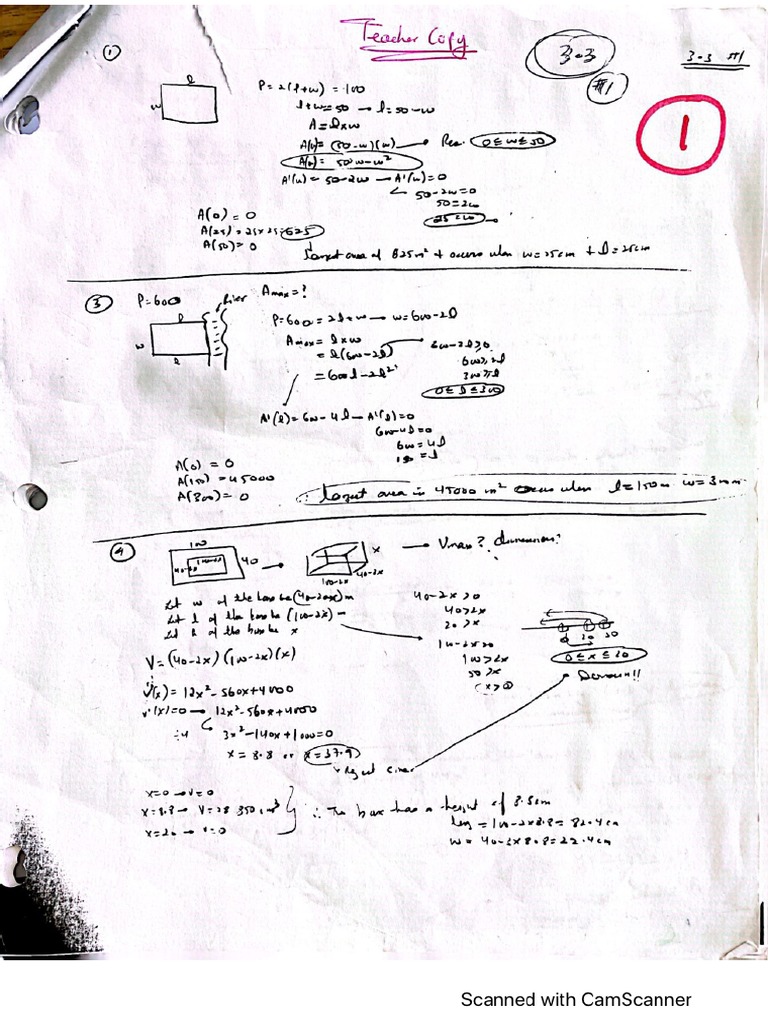 Teacher Copy
3.3
#1
3-3 #1
1
①
l
w
P = 2(l+w) = 100
l+w=50 → l=50-w
A=l×w
A(w)= (50-w)(w) → Res. 0≤w≤50
A(w)= 50w-w²
A'(w)= 50-2w — A'(w)=0
50-2w=0
50=2w
25=w
A(0)=0
A(25)=25×25=625
A(50)=0
Largest area of 625m² + occurs when w=25cm + l=25cm
③
P=600
River
Amax=?
l
w
l
P=600=2l+w → w=600-2l
Amax=l×w
=l(600-2l)
=600l-2l²
600-2l≥0
600≥2l
300≥l
0≤l≤300
A'(l)=600-4l — A'(l)=0
600-4l=0
600=4l
150=l
A(0)=0
A(150)=45000
A(300)=0
∴ largest area is 45000 m² occurs when l=150m w=300m
④
100
40
x
40-2x
100-2x
→ Vmax? dimensions?
Let w of the box be (40-2x)
Let l of the box be (100-2x)
Let h of the box be x
40-2x>0
40>2x
20>x
100-2x>0
100>2x
50>x
x>0
0 20 50
0≤x≤20
Domain!!
V=(40-2x)(100-2x)(x)
V'(x)=12x²-560x+4000
v'(x)=0 → 12x²-560x+4000
÷4
3x²-140x+1000=0
x=8.8 or x=37.9
Reject since
x=0→v=0
x=8.8→ V=28 350 cm³
x=20→ v=0
∴ The box has a height of 8.8cm
len=100-2×8.8=82.4cm
w=40-2×8.8=22.4cm
Scanned with CamScanner